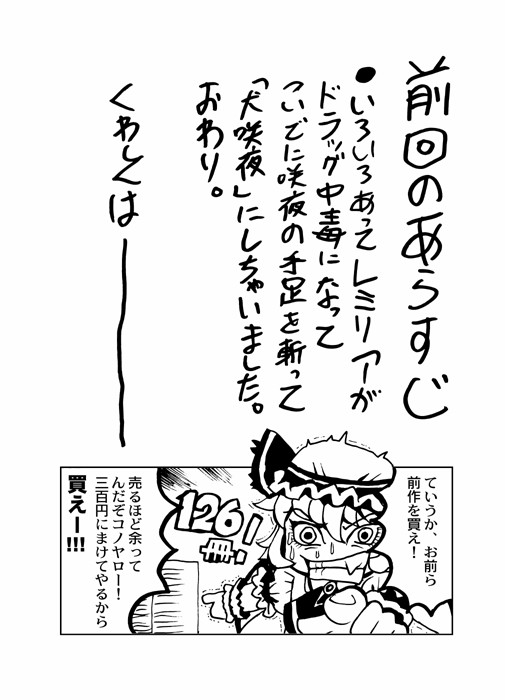 前回のあらすじ
●いろいろあってレミリアーが
ドラッグ中毒になって
ついでに咲夜の手足を斬って
「犬咲夜」にしちゃいました。
おわり。
くわしくはーーー
ていうか、お前ら
前作を買え!
126
冊!
売るほど余って
んだぞコノヤロー!
三百円にまけてやるから
買えー!!!